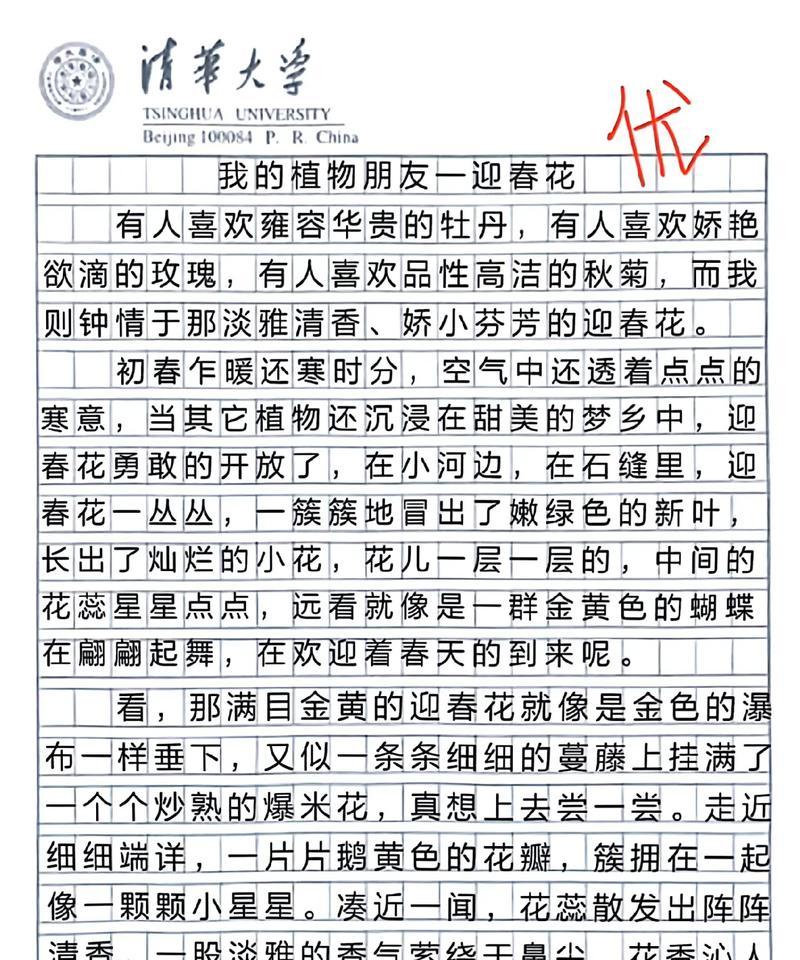 清华大学
TSINGHUA UNIVERSITY
Beijing 100084 P. R. China
优
我的植物朋友一迎春花
有人喜欢雍容华贵的牡丹，有人喜欢娇艳
欲滴的玫瑰，有人喜欢品性高洁的秋菊，而我
则钟情于那淡雅清香、娇小芬芳的迎春花。
初春乍暖还寒时分，空气中还透着点点的
寒意，当其它植物还沉浸在甜美的梦乡中，迎
春花勇敢的开放了，在小河边，在石缝里，迎
春花一丛丛，一簇簇地冒出了嫩绿色的新叶，
长出了灿烂的小花，花儿一层一层的，中间的
花蕊星星点点，远看就像是一群金黄色的蝴蝶
在翩翩起舞，在欢迎着春天的到来呢。
看，那满目金黄的迎春花就像是金色的瀑
布一样垂下，又似一条条细细的蔓藤上挂满了
一个个炒熟的爆米花，真想上去尝一尝。走近
细细端详，一片片鹅黄色的花瓣，簇拥在一起
像一颗颗小星星。凑近一闻，花蕊散发出阵阵
清香，一股淡雅的香气萦绕于鼻尖，花香沁人